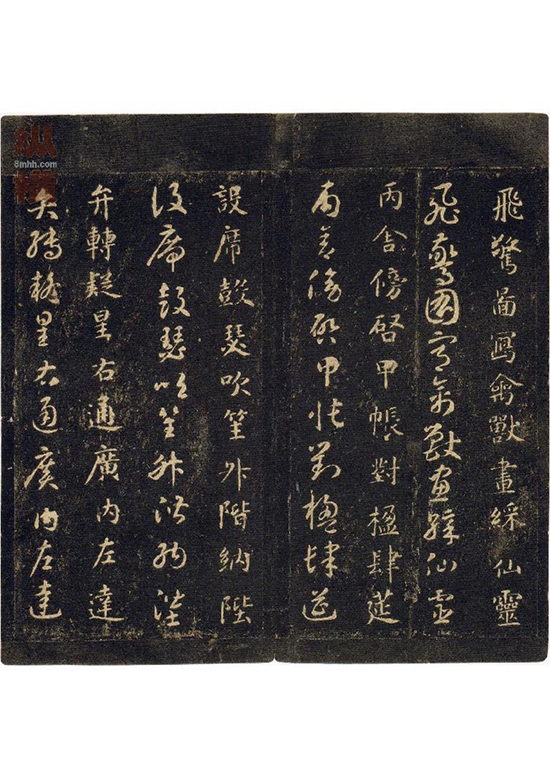 飛驚啚寫禽獸畫綵仙靈
飛驚圖寫禽獸畫綵仙靈
丙舍傍啓甲帳對楹肆莚
丙舍傍啓甲帳對楹肆筵
設席鼓瑟吹笙升階納陛
設席鼓瑟吹笙升階納陛
弁轉疑星右通廣内左達
弁轉疑星右通廣内左達
8mhh.com